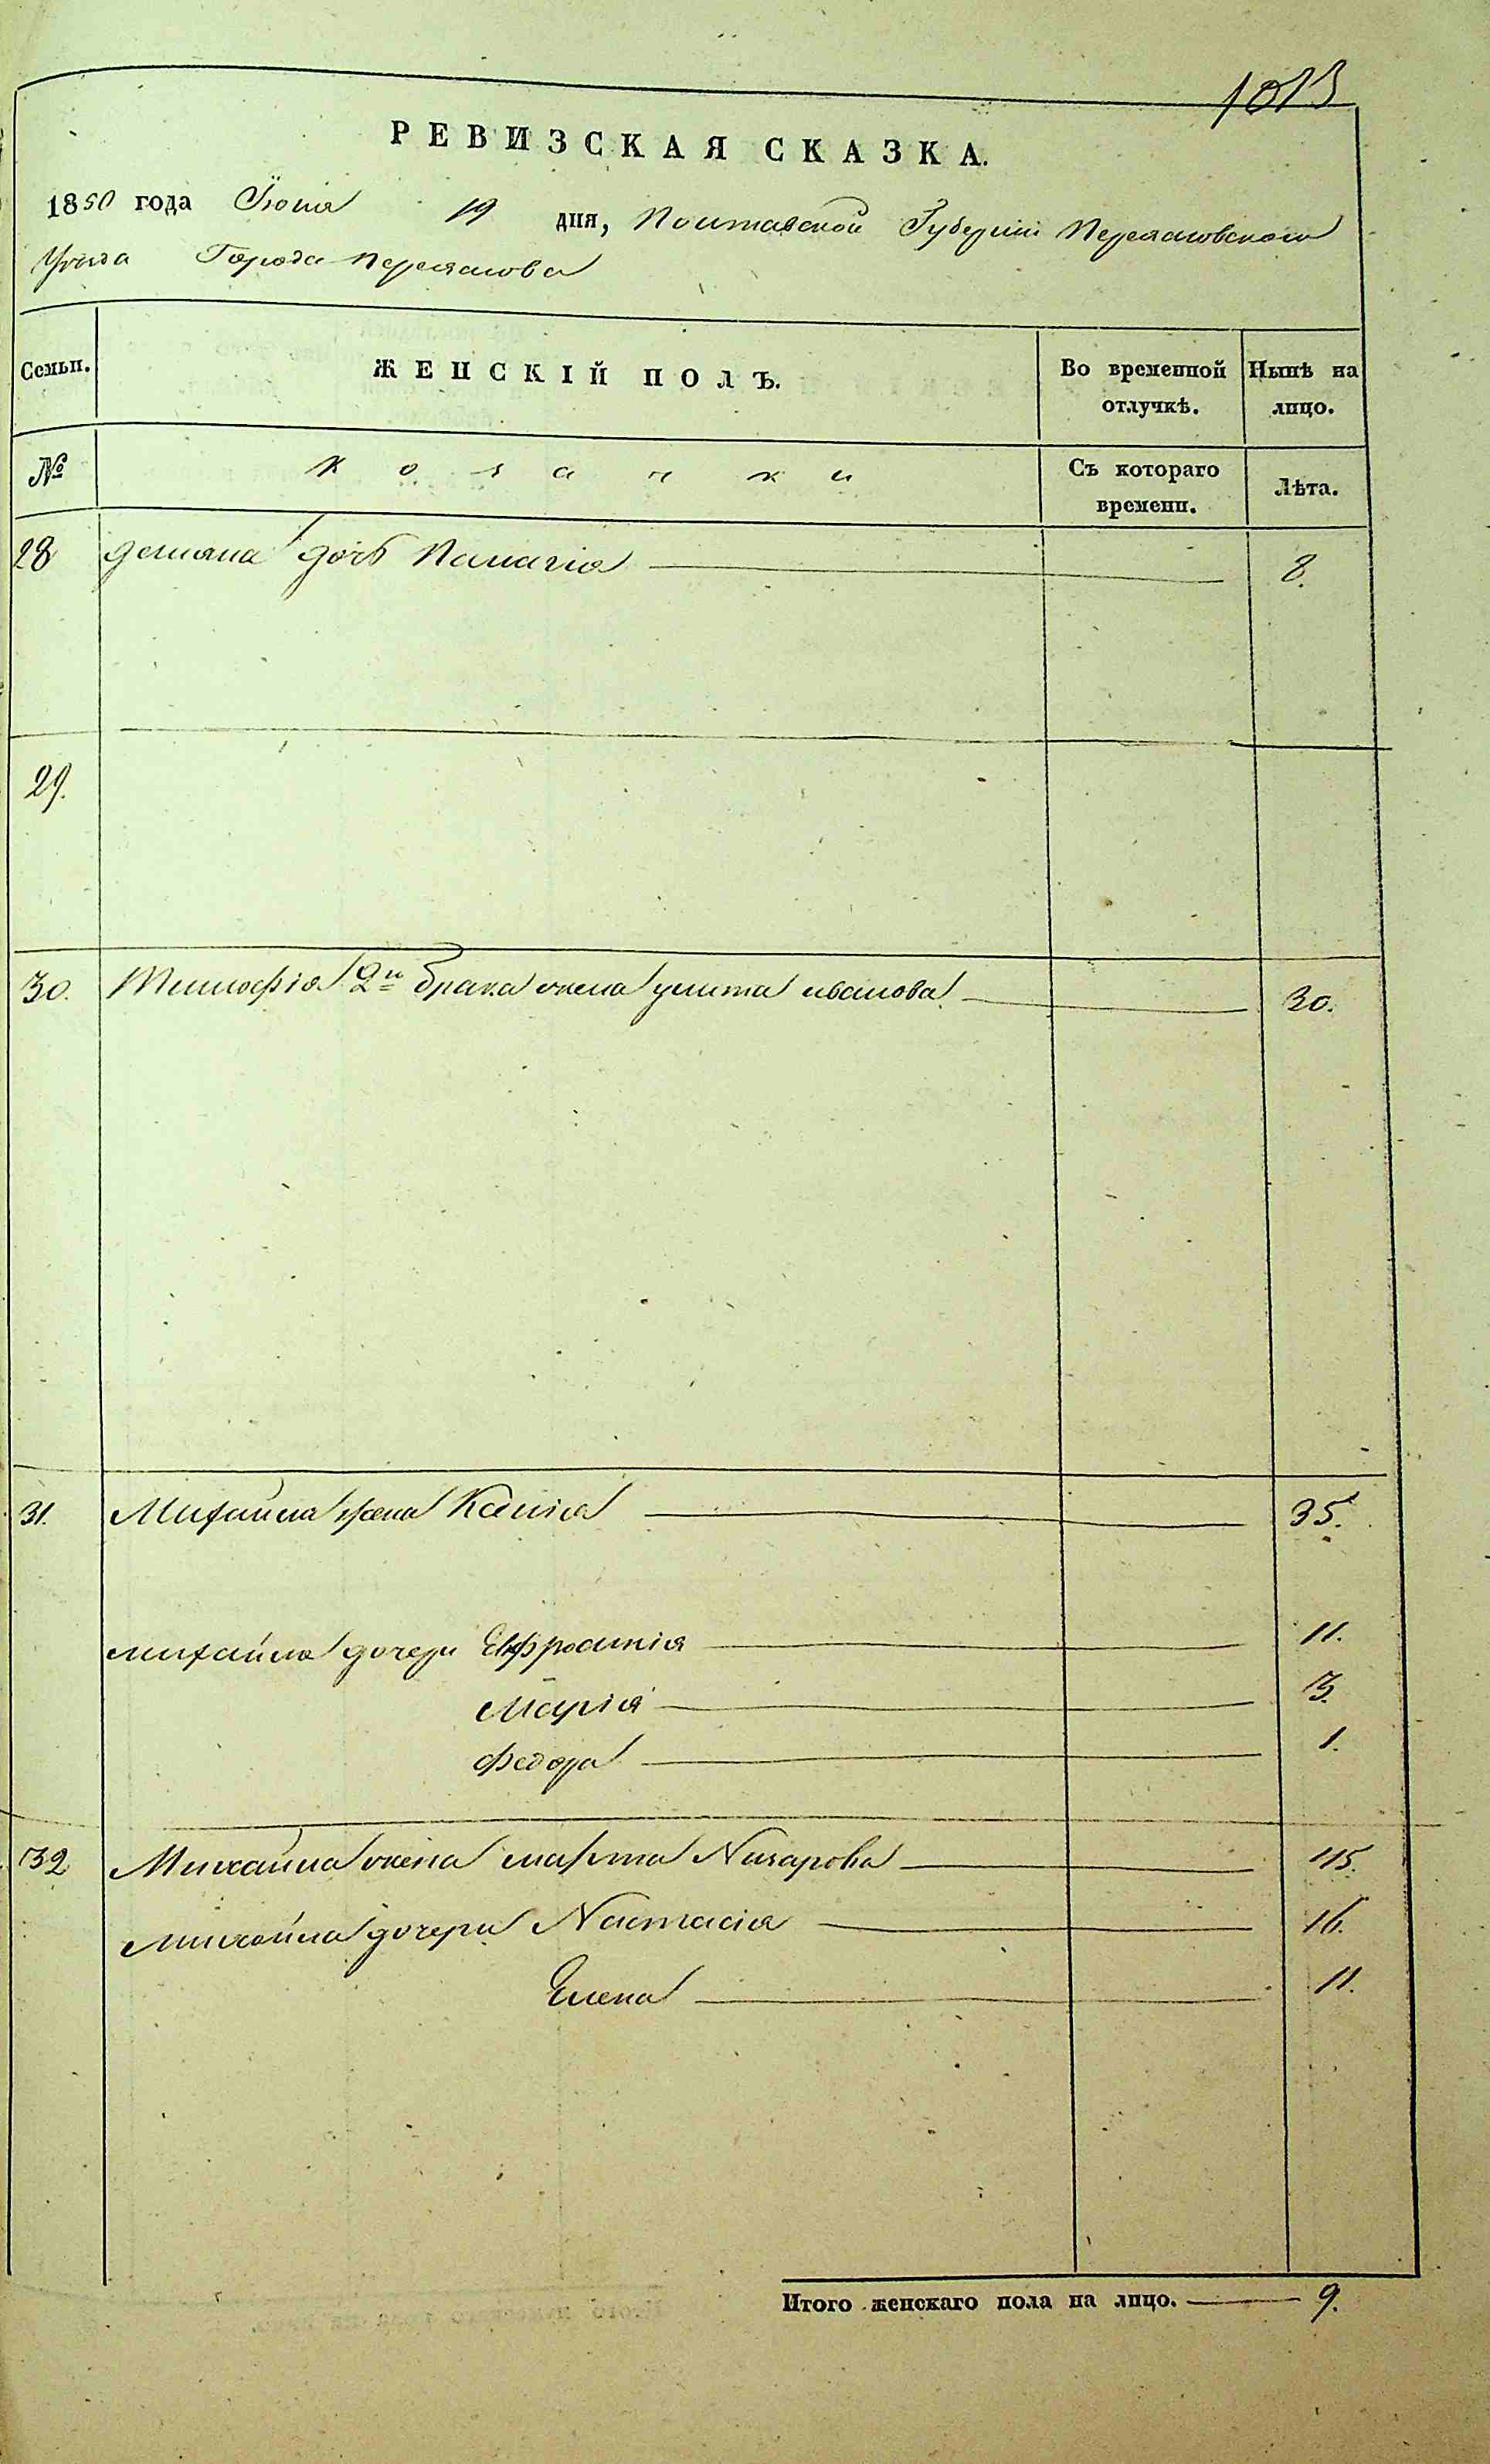 1013
РЕВИЗСКАЯ СКАЗКА.
1850 года Іюня 19 дня, Полтавской Губерніи Переяславского
Уѣзда Города Переяслова
Семьи. ЖЕНСКІЙ ПОЛЪ. Во временной отлучкѣ. Нынѣ на лицо.
№ Козачки Съ котораго времени. Лѣта.
28 Демяна дочь Палагія 8.
29.
30. Тимофія 2го брака жена улита иванова 30.
31. Михайла жена Ксенія 35.
михайла дочери Евфросинія 11.
Марія 3.
Федора 1.
32 Михайла жена марта Назарова 45.
михайла дочери Настасія 16.
Елена 11.
Итого женскаго пола на лицо. 9.